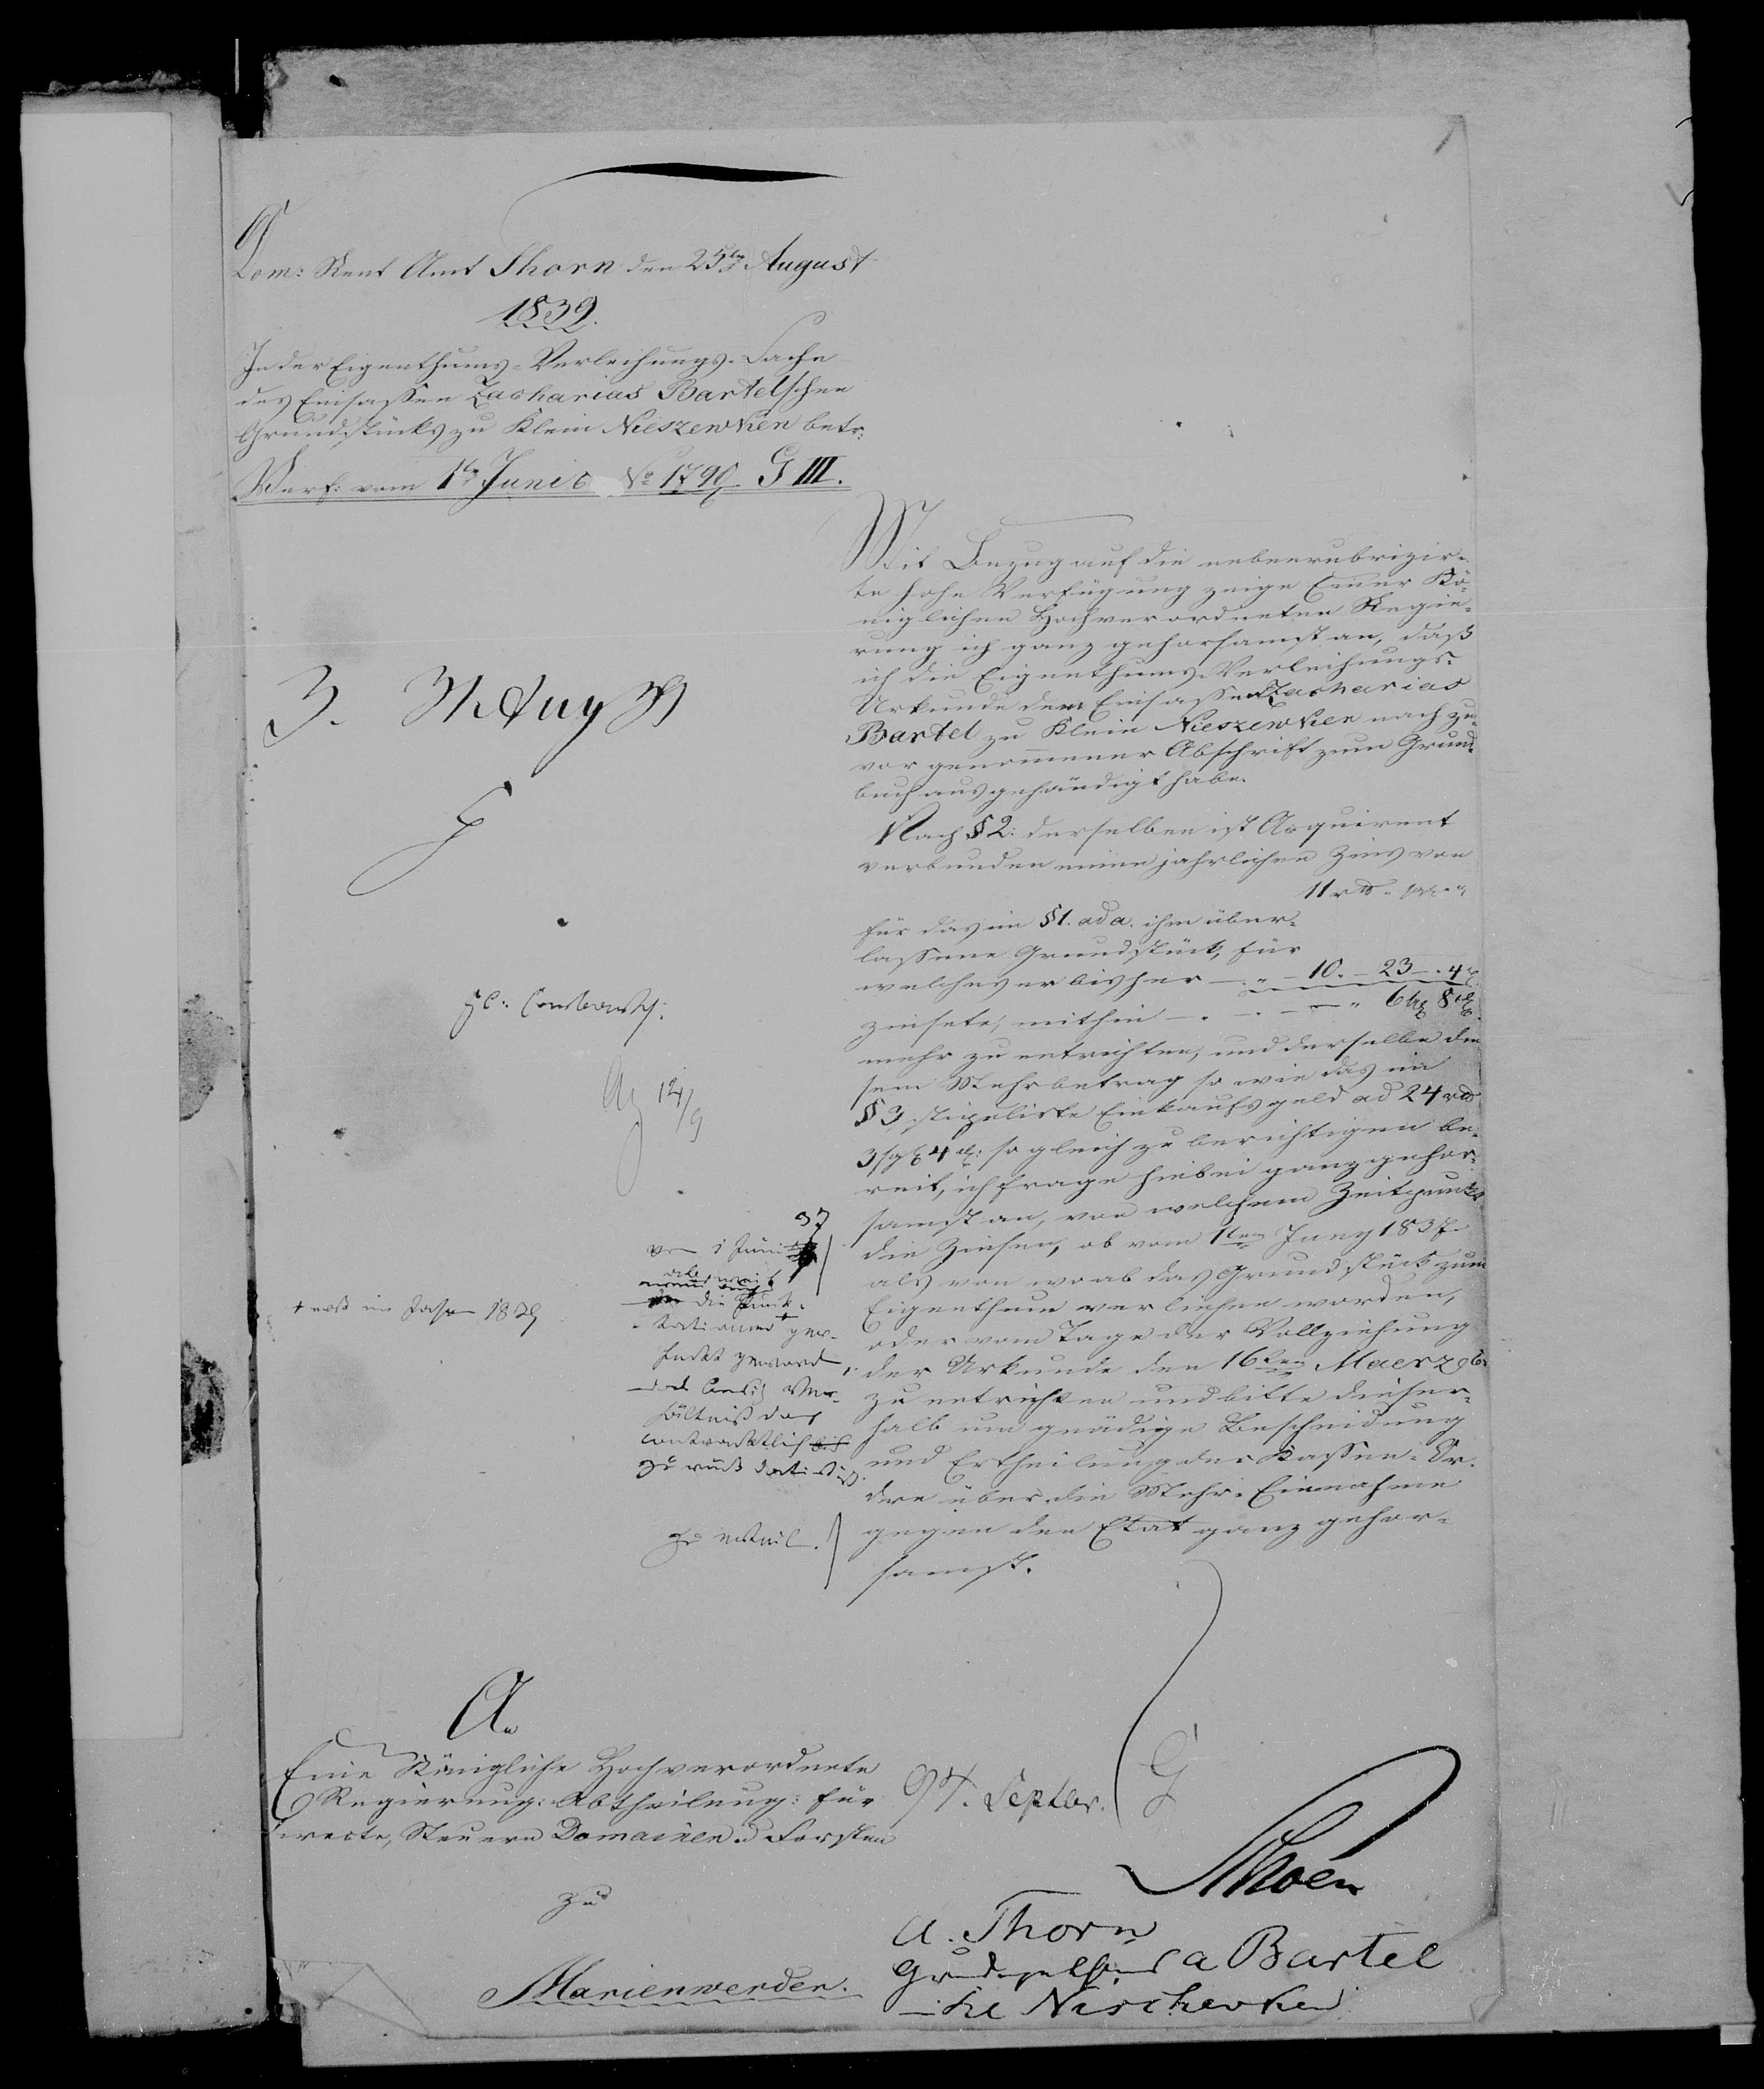 Dom: Rent Amt Thorn den 25ten August
1839.
In der Eigenthums-Verleihungs-Sache
des Einsassen Zacharias Bartelschen
Grundstücks zu Klein Nieszewken betr:
Verf: vom 1ten Juni c No 1790 G III.
Mit Bezug auf die nebenrubrizir-
te hohe Verfügung zeige Einer Kö-
niglichen Hochverordneten Regie-
rung ich ganz gehorsamst an, daß
ich die Eigenthums-Verleihungs-
Urkunde dem Einsassen Zacharias
Bartel zu Klein Nieszewken nach zu-
vor genommener Abschrift zum Grund-
buch ausgehändigt habe.
Nach § 2: derselben ist Acquirent
verbunden einen jährlichen Zins von
11 rtl
für das im § 1. ad a. ihm über-
lassene Grundstück, für
welches er bisher — 10. — 23 — 4
zinsete, mithin — 6 sg 8 d
mehr zu entrichten, und derselbe die
sem Mehrbetrag so wie das im
§ 3 stipulirte Einkaufsgeld ad 24 rtl
3 sg 4 d: so gleich zu berichtigen be-
reit, ich frage hiebei ganz gehor-
samst an, von welchem Zeitpunkt
die Zinsen, ob vom 1ten Juny 1837
als von wo ab das Grundstück zum
Eigenthum verliehen worden,
oder vom Tage der Vollziehung
der Urkunde den 16ten Maerz c
zu entrichten und bitte dieser-
halb um gnädige Bescheidung
und Ertheilung der Kassen-Or-
dre über die Mehr-Einnahme
gegen den Etat ganz gehor-
samst.
3. 31 Aug 39
G
12/9
37
1 Juni
die Punk-
contractlich
+ erst im Jahre 1829
A.
Eine Königliche Hochverordnete
Regierung: Abtheilung: für
directe, Steuern Domainen u Forsten
zu
Marienwerder.
94. Septbr.
G
a. Thorn
a Bartel
Kl Nischewken